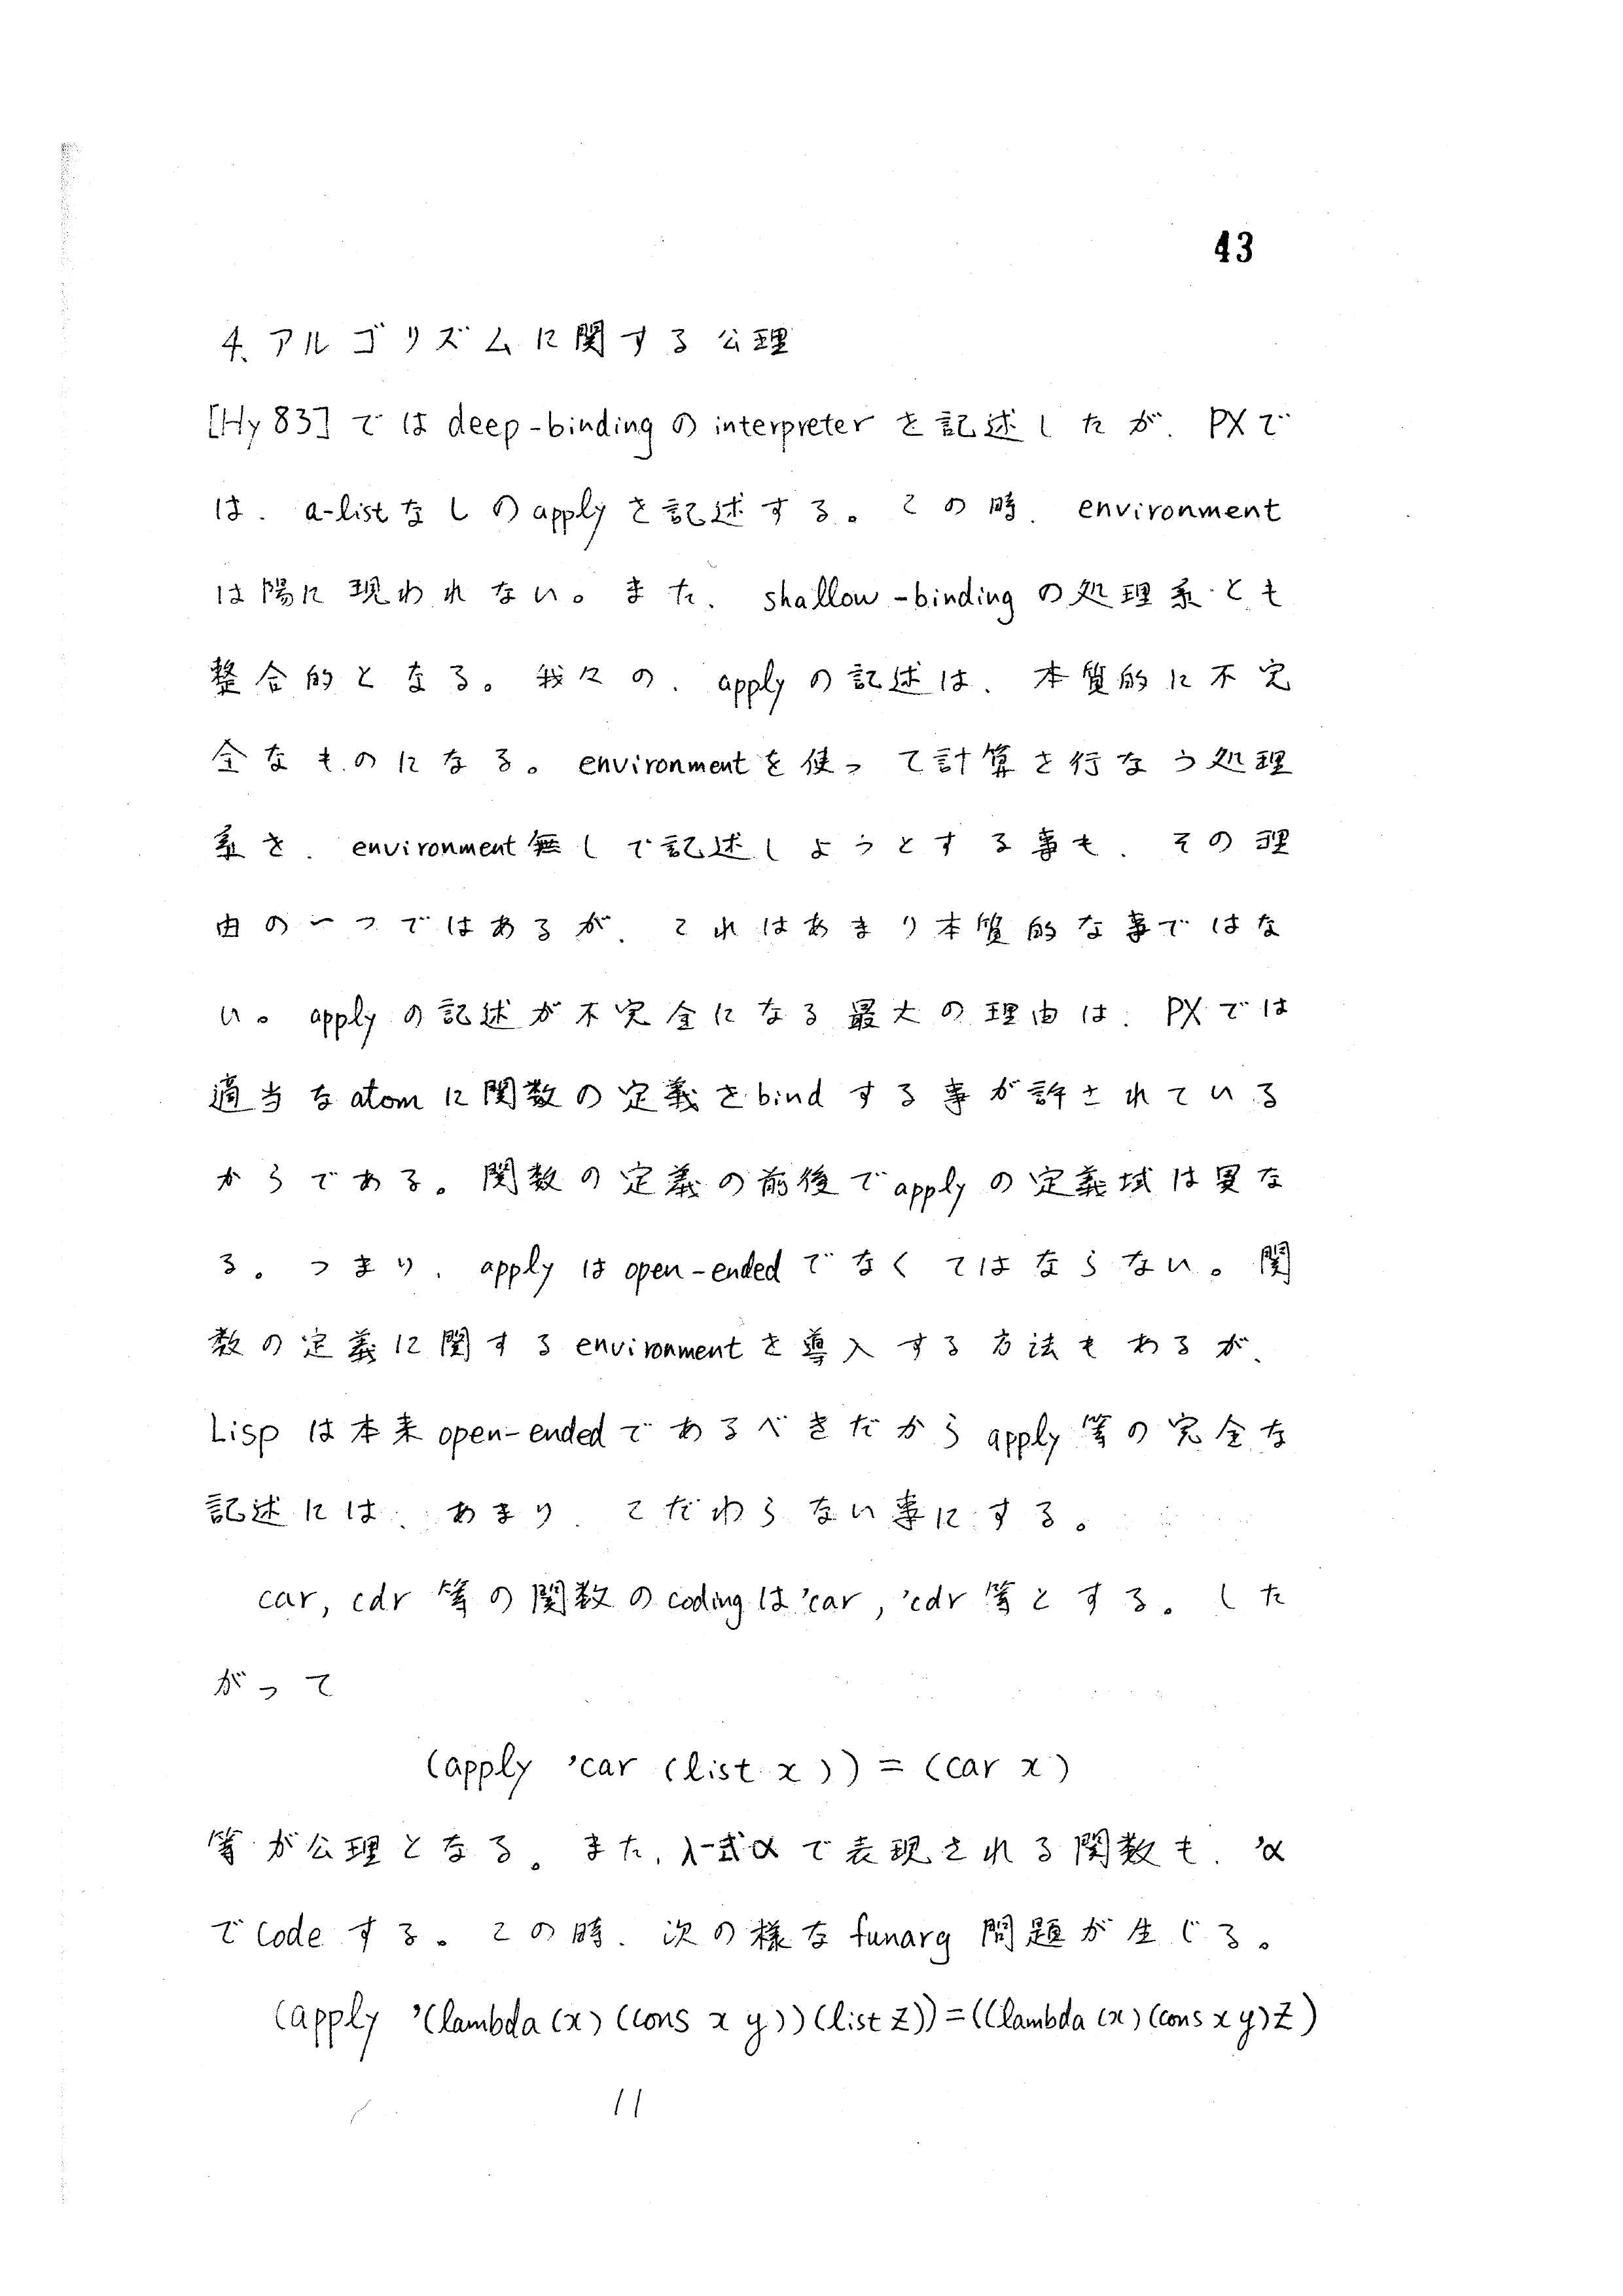 43
4. アルゴリズムに関する公理
[Hy 83] では deep-binding の interpreter を記述したが、PXで
は、a-list なしの apply を記述する。この時、environment
は陽に現われない。また、shallow-binding の処理系とも
整合的となる。我々の、apply の記述は、本質的に不完
全なものになる。environment を使って計算を行なう処理
系を、environment 無しで記述しようとする事も、その理
由の一つではあるが、これはあまり本質的な事ではな
い。apply の記述が不完全になる最大の理由は、PXでは
適当な atom に関数の定義を bind する事が許されている
からである。関数の定義の前後で apply の定義域は異な
る。つまり、apply は open-ended でなくてはならない。関
数の定義に関する environment を導入する方法もあるが、
Lisp は本来 open-ended であるべきだから apply 等の完全な
記述には、あまり、こだわらない事にする。
car, cdr 等の関数の coding は 'car, 'cdr 等とする。した
がって
(apply 'car (list x)) = (car x)
等が公理となる。また、λ-式αで表現される関数も、'α
で code する。この時、次の様な funarg 問題が生じる。
(apply '(lambda (x) (cons x y)) (list z)) = ((lambda (x) (cons x y) z)
11